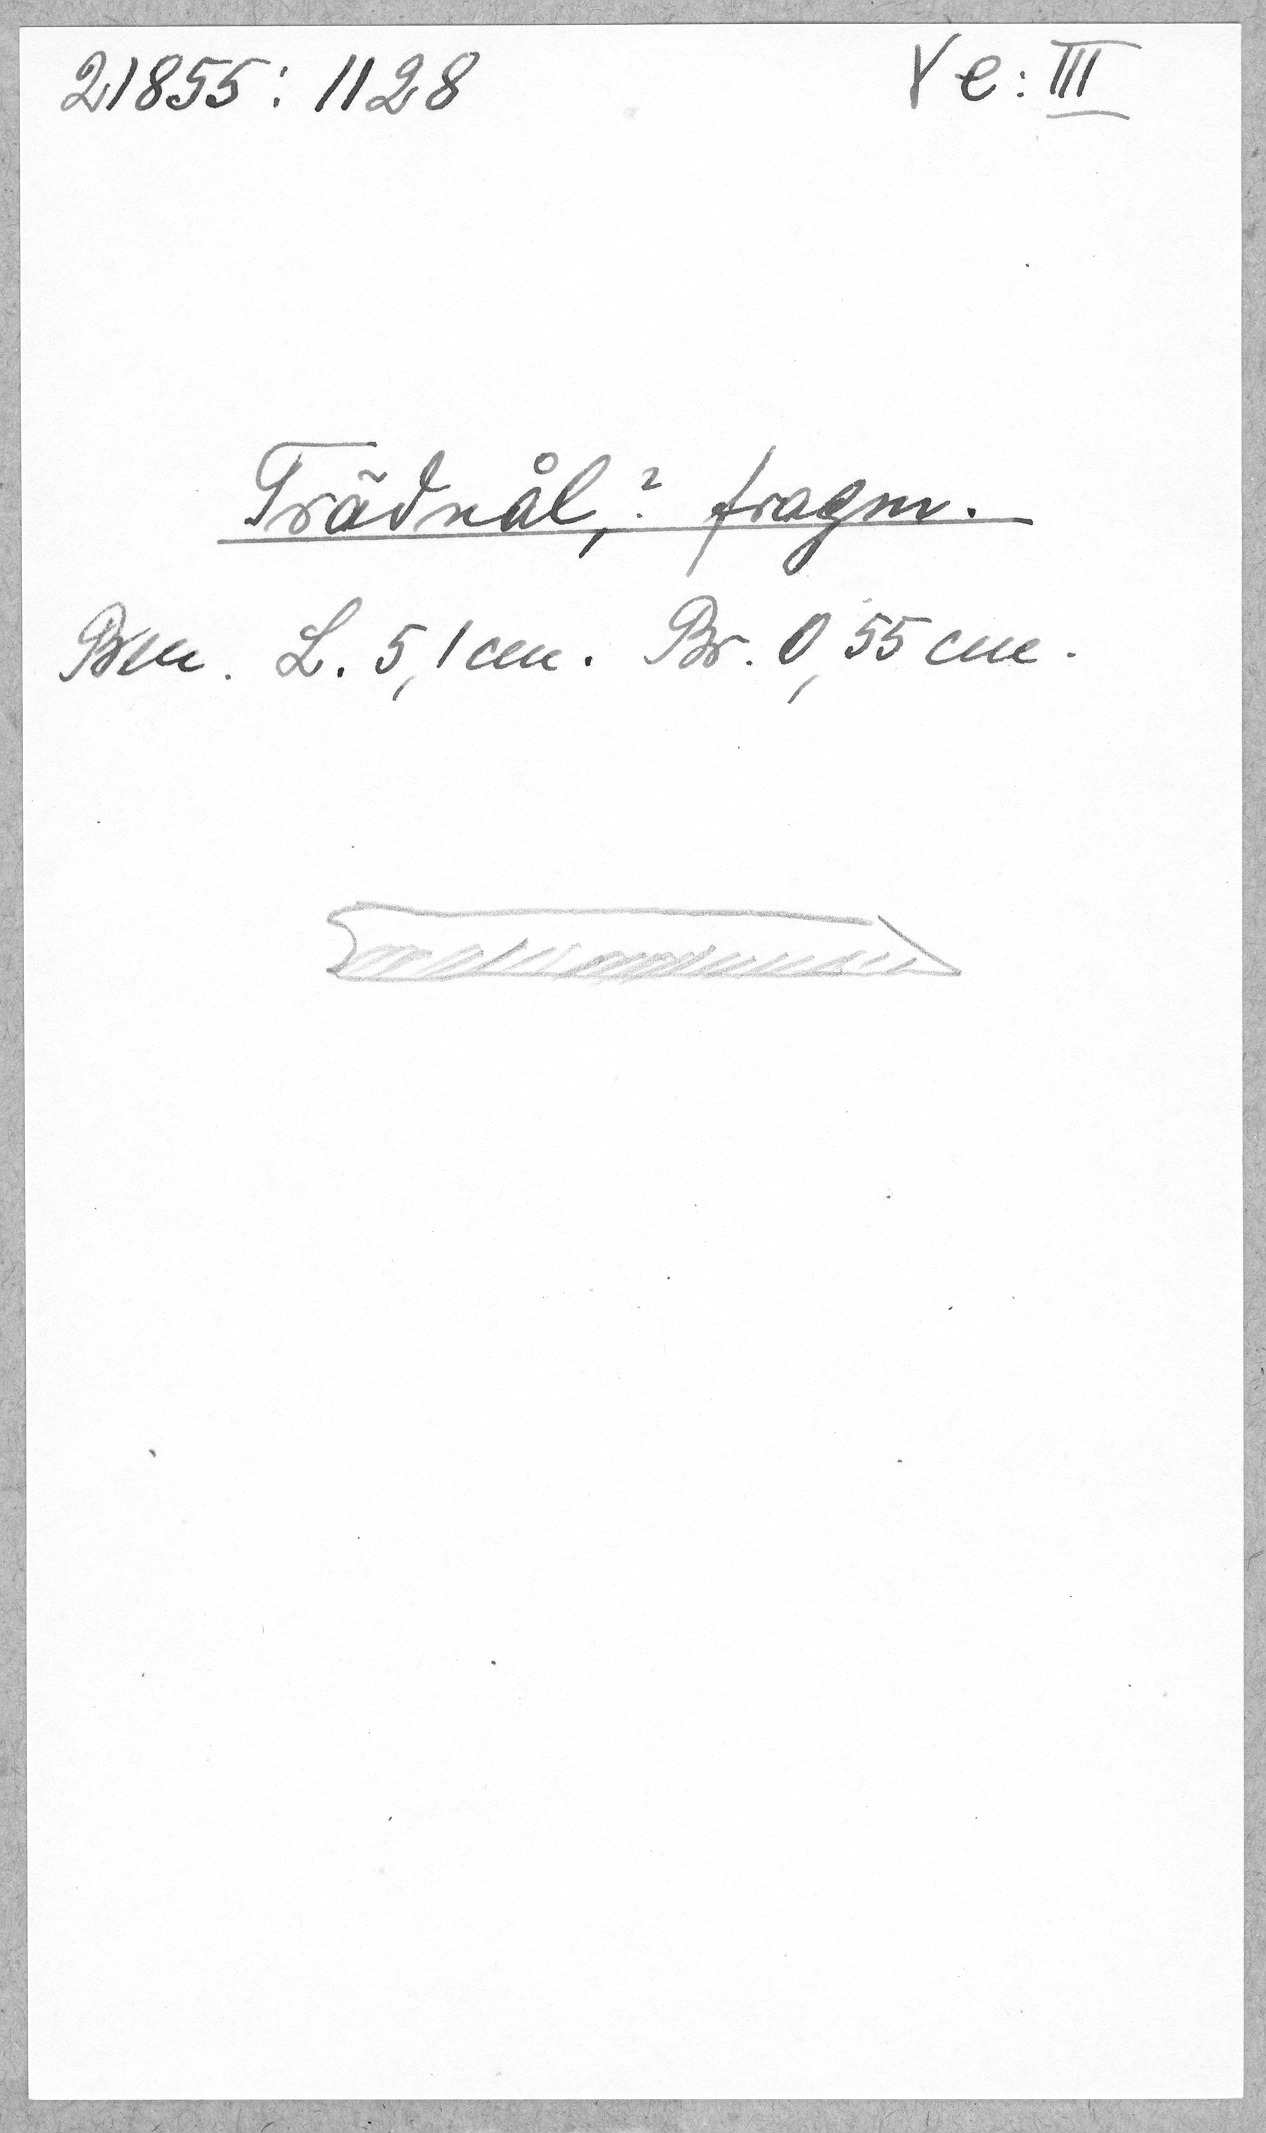 21855: 1128
γ e: III
Trädnål,? fragm.
Ben. L. 5,1 cm. Br. 0,55 cm.